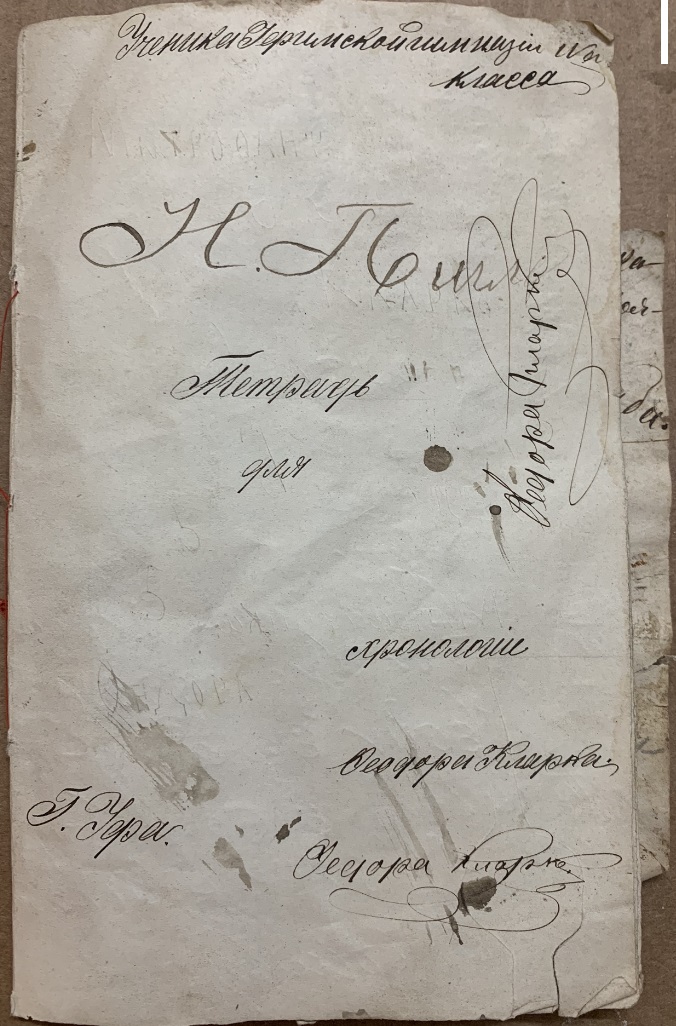 Ученика Уфимской гимназіи
класса
Н. П
Тетрадь
для
хронологіи
Ѳеодора Кларка.
Г. Уфа.
Ѳедора Кларка.
Ѳедора Кларка